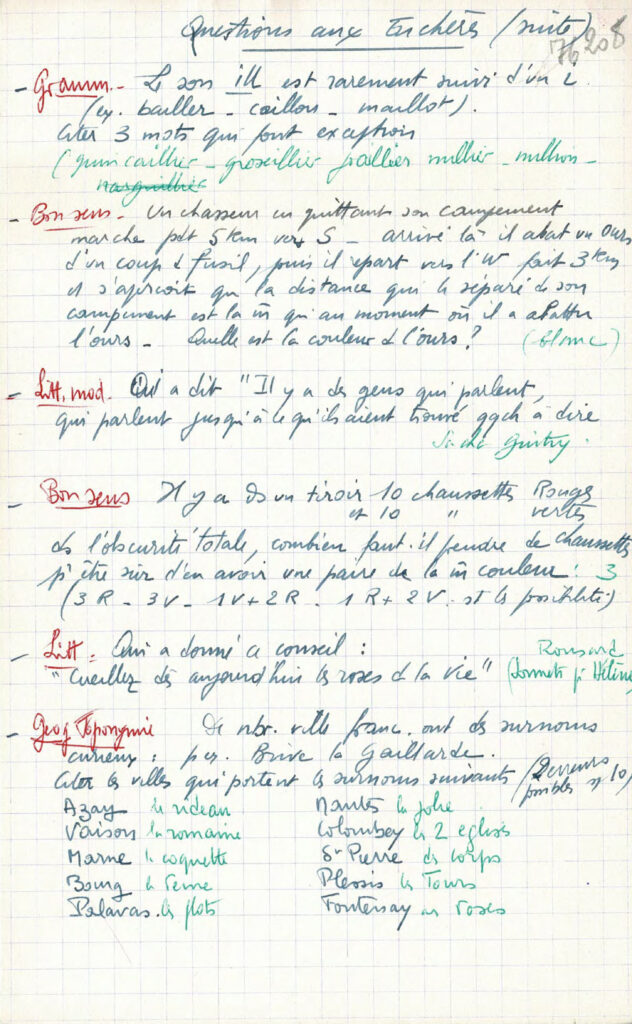 Questions aux Enchères (suite)
76 208
- Gramm. - Le son ill est rarement suivi d'un i
(ex. bailler - caillou - maillot).
citer 3 mots qui font exception
(quincaillier - groseillier joaillier millier - million -
marguillier
- Bon sens - Un chasseur en quittant son campement
marche pdt 5 km vers S - arrivé là il abat un Ours
d'un coup de fusil, puis il repart vers l'W fait 3 km
et s'aperçoit que la distance qui le sépare de son
campement est la m̄ qu'au moment où il a abattu
l'ours - Quelle est la couleur de l'ours ? (blanc)
- Litt. mod. Qui a dit "Il y a des gens qui parlent,
qui parlent jusqu'à ce qu'ils aient trouvé qqch à dire
Sacha Guitry.
- Bon sens Il y a ds un tiroir 10 chaussettes Rouges
et 10 " vertes
ds l'obscurité totale, combien faut-il prendre de chaussettes
pr être sûr d'en avoir une paire de la m̄ couleur : 3
(3 R - 3 V - 1 V + 2 R - 1 R + 2 V st les possibilités)
- Litt = Qui a donné ce conseil : Ronsard
"Cueillez dès aujourd'hui les roses de la vie" (Sonnets pr Hélène
- Geog Toponymie De nbr. ville franc. ont des surnoms
curieux : p. ex. Brive la Gaillarde.
citer les villes qui portent les surnoms suivants (2 erreurs
possibles s/ 10)
Azay le rideau Mantes la jolie
Vaison la romaine Colombey les 2 eglises
Marne la coquette St Pierre des corps
Bourg la reine Plessis les Tours
Palavas les flots Fontenay aux roses